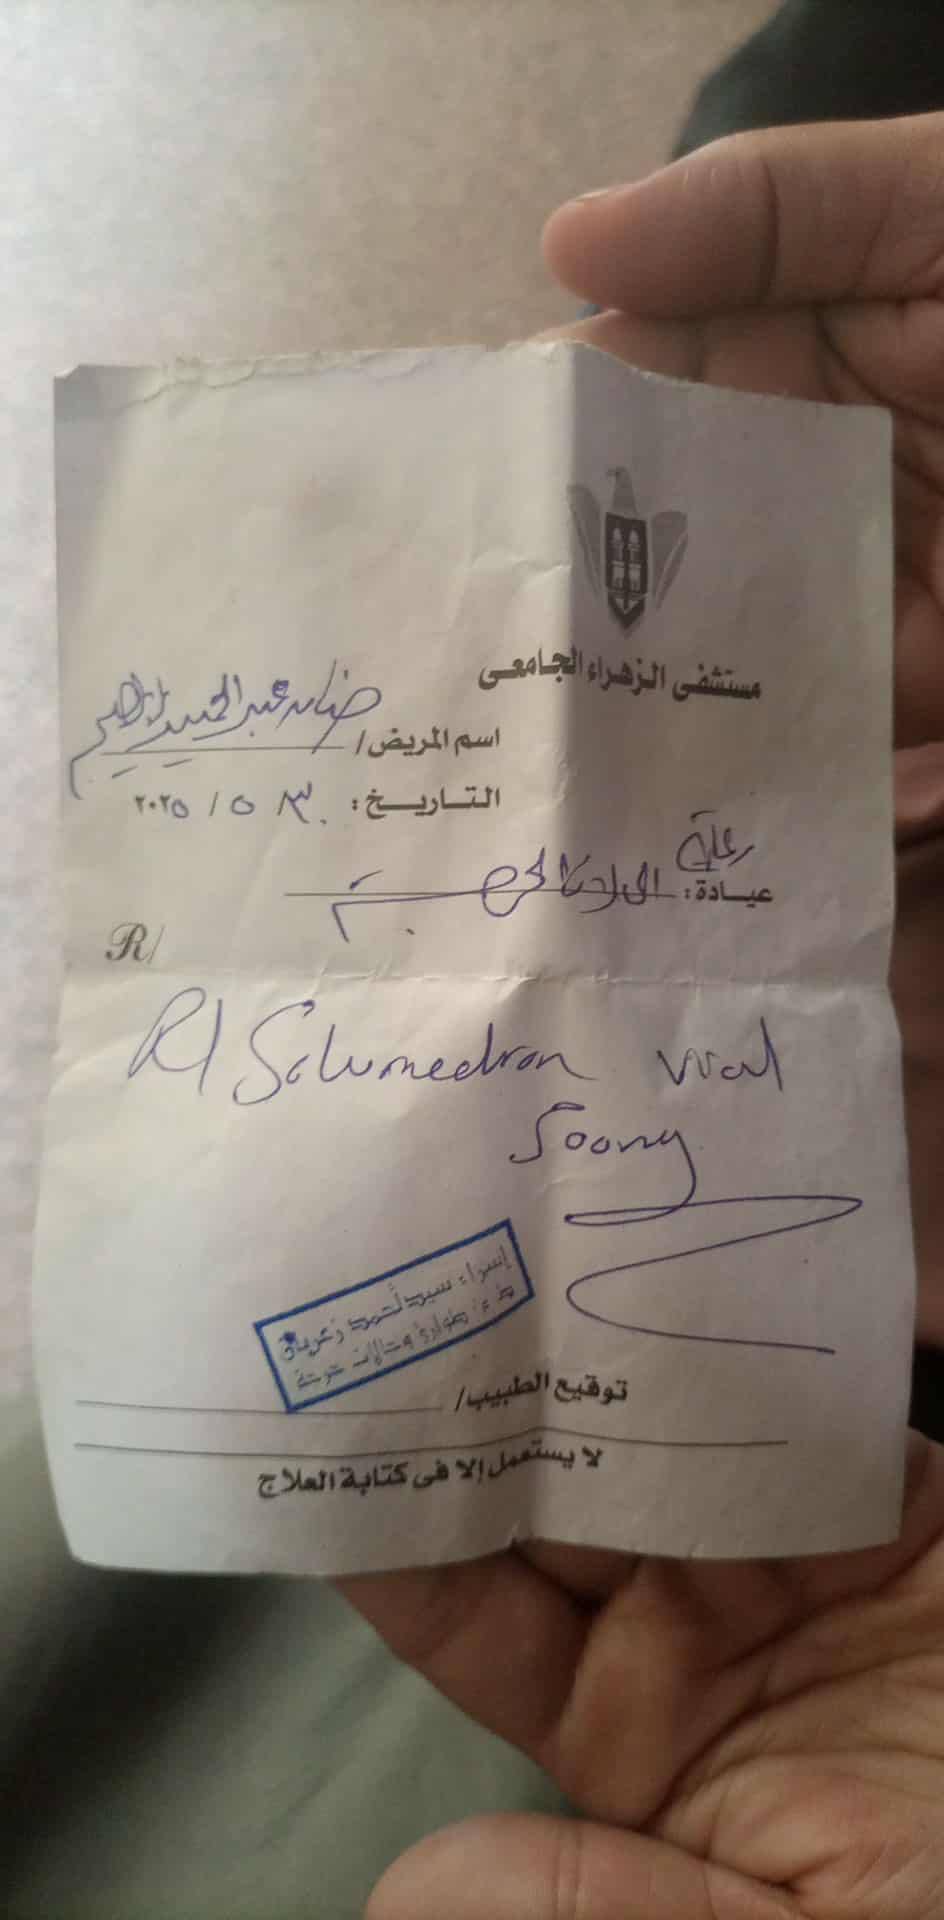 مستشفى الزهراء الجامعى
اسم المريض/ عبد الحميد ابراهيم
التاريخ: ٣٠ / ٥ / ٢٠٢٥
رعاية
عيادة: الحالات الحرجة
R/
R/ Solumedron vial
500mg
إسراء سيد أحمد زعرباني
طوارئ وحالات حرجة
توقيع الطبيب/
لا يستعمل إلا فى كتابة العلاج